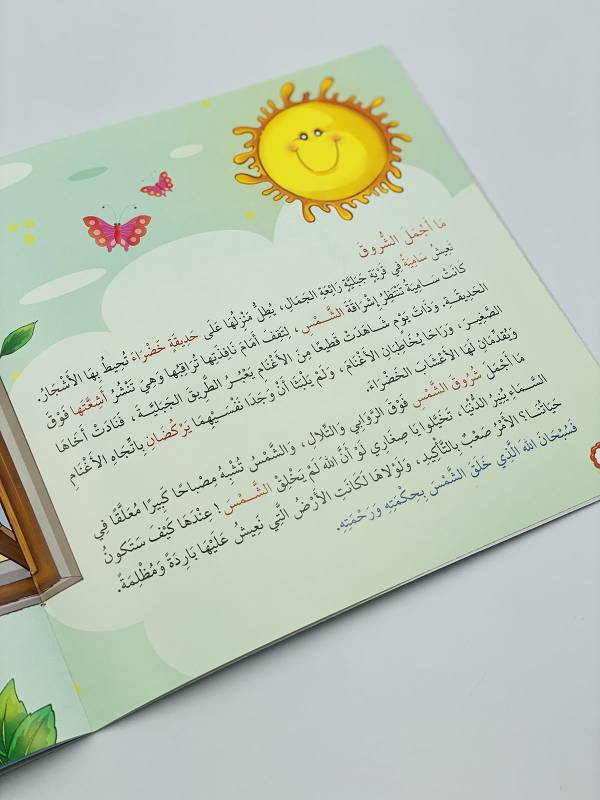 مَا أَجْمَلَ الشُّرُوقَ
تَعِيشُ سَامِيَةُ فِي قَرْيَةٍ جَبَلِيَّةٍ رَائِعَةِ الجَمَالِ، يُطِلُّ مَنْزِلُهَا عَلَى حَدِيقَةٍ خَضْرَاءَ تُحِيطُ بِهَا الأَشْجَارُ.
كَانَتْ سَامِيَةُ تَنْتَظِرُ إِشْرَاقَةَ الشَّمْسِ، لِتَقِفَ أَمَامَ نَافِذَتِهَا تُرَاقِبُهَا وَهِيَ تَنْشُرُ أَشِعَّتَهَا فَوْقَ
الحَدِيقَةِ، وَذَاتَ يَوْمٍ شَاهَدَتْ قَطِيعًا مِنَ الأَغْنَامِ يَعْبُرُ الطَّرِيقَ الجَبَلِيَّةَ، فَنَادَتْ أَخَاهَا
الصَّغِيرَ، وَرَاحَا يُخَاطِبَانِ الأَغْنَامَ، وَلَمْ يَلْبَثَا أَنْ وَجَدَا نَفْسَيْهِمَا يَرْكُضَانِ بِاتِّجَاهِ الأَغْنَامِ
وَيُقَدِّمَانِ لَهَا الأَعْشَابَ الخَضْرَاءَ.
مَا أَجْمَلَ شُرُوقَ الشَّمْسِ فَوْقَ الرَّوَابِي وَالتِّلَالِ، وَالشَّمْسُ تُشْبِهُ مِصْبَاحًا كَبِيرًا مُعَلَّقًا فِي
السَّمَاءِ يُنِيرُ الدُّنْيَا، تَخَيَّلُوا يَا صِغَارِي لَوْ أَنَّ اللهَ لَمْ يَخْلِقْ الشَّمْسَ! عِنْدَهَا كَيْفَ سَتَكُونُ
حَيَاتُنَا؟ الأَمْرُ صَعْبٌ بِالتَّأْكِيدِ، وَلَوْلَاهَا لَكَانَتِ الأَرْضُ الَّتِي نَعِيشُ عَلَيْهَا بَارِدَةً وَمُظْلِمَةً.
فَسُبْحَانَ اللهِ الَّذِي خَلَقَ الشَّمْسَ بِحِكْمَتِهِ وَرَحْمَتِهِ.